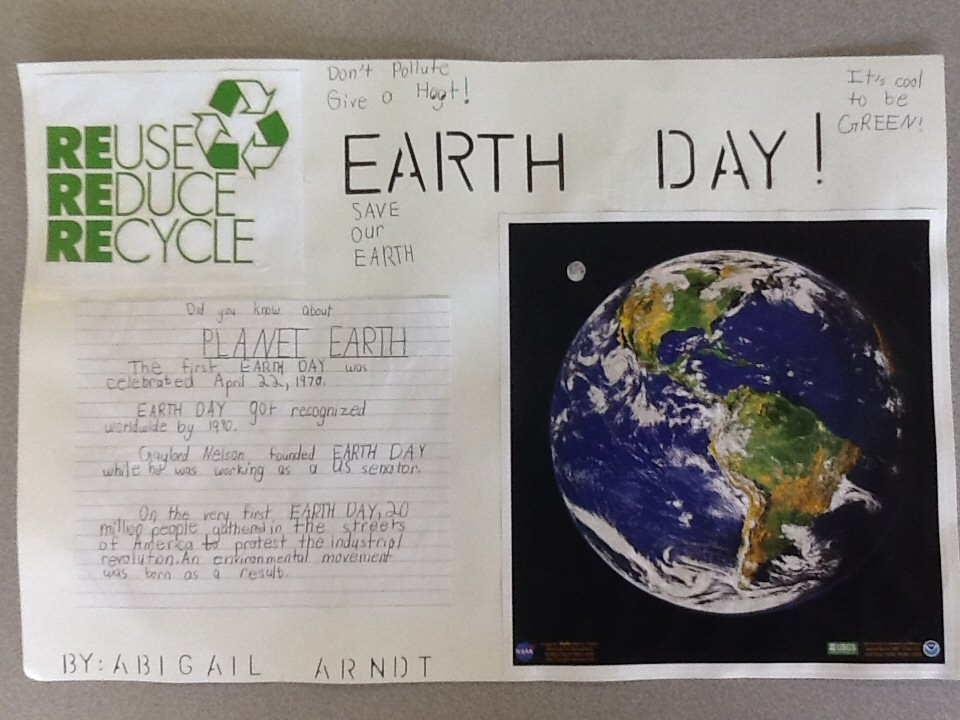 Don't Pollute
Give a Hoot!
It's cool
to be
GREEN!
REUSE
REDUCE
RECYCLE
EARTH DAY!
SAVE
Our
EARTH
Did you know about
PLANET EARTH
The first EARTH DAY was
celebrated April 22, 1970.
EARTH DAY got recognized
worldwide by 1990.
Gaylord Nelson founded EARTH DAY
while he was working as a US senator.
On the very first EARTH DAY, 20
million people gathered in the streets
of America to protest the industrial
revolution. An environmental movement
was born as a result.
NASA
USGS
BY: ABIGAIL ARNDT